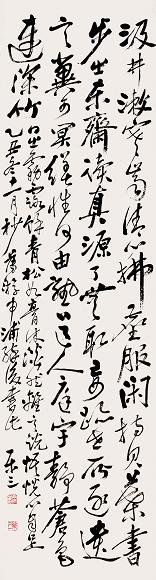 汲井漱寒齒清心拂塵服閑持貝葉書
步出東齋讀真源了無取妄跡世所逐遺
言冀可冥繕性何由熟道人庭宇靜苔色
連深竹日出霧露餘青松如膏沐澹然離言說悟悅心自足
乙丑冬十一月杪 申浦 書